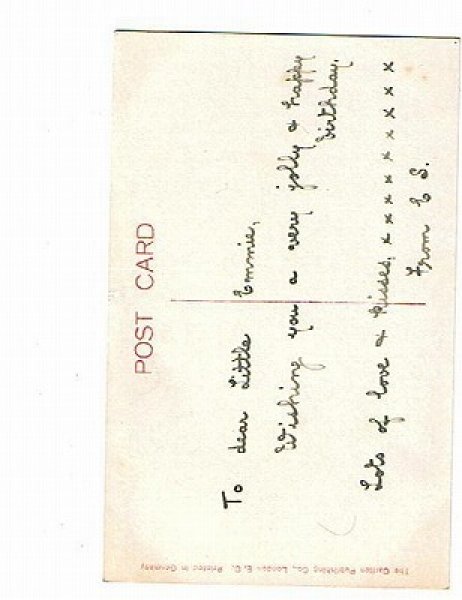 POST CARD
To dear Little Emmie,
Wishing you a very jolly & happy
birthday.
Lots of love & kisses, x x x x x x x x x x
From E S.
The Carlton Publishing Co., London E. C. Printed in Germany